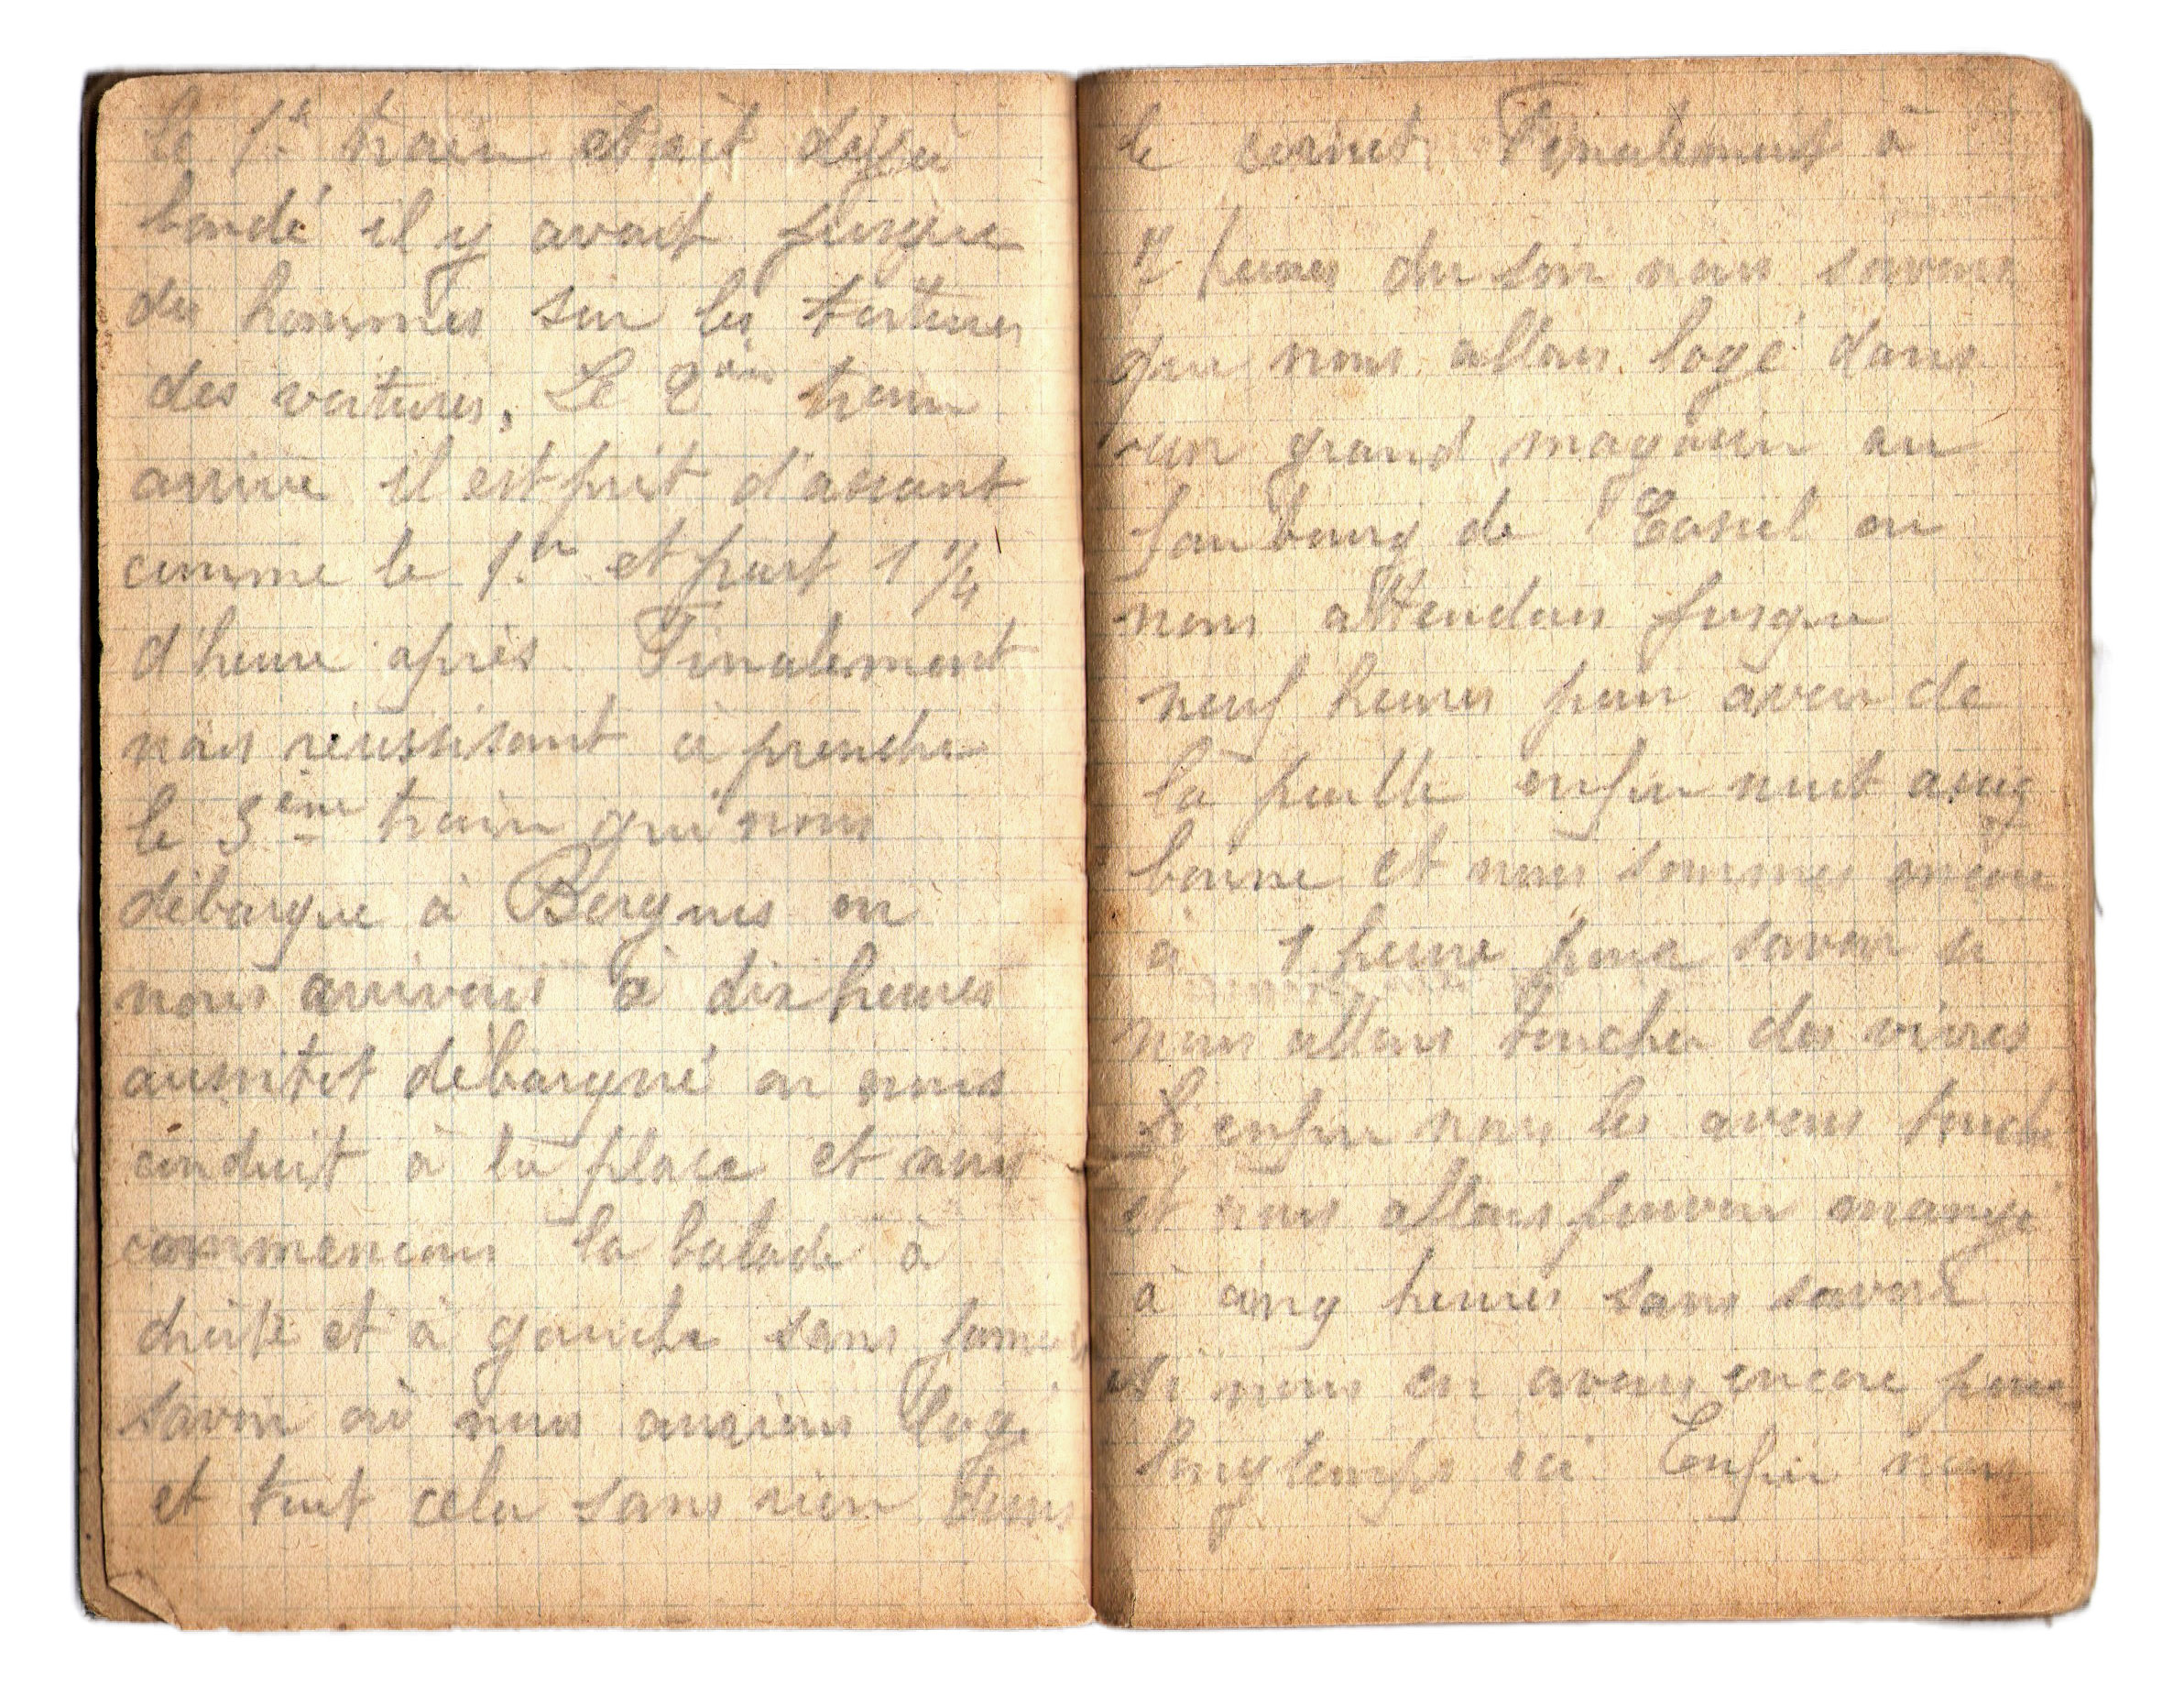 le 1er train etait déja
bondé il y avait jusque
des hommes sur les toitures
des voitures. Le 2ème train
arrive il est prit d'assaut
comme le 1er et part 1 1/4
d'heure après. Finalement
nous réussisont à prendre
le 3ème train qui nous
débarque à Bergues on
nous arrivons à dix heures
aussitot débarqué on nous
conduit à la place et nous
commencons la balade à
droite et à gauche sans jamais
savoir où nous aurions logé
et tout cela sans rien dans
le cornet Finalement à
heures du soir nous savons
que nous allons logé dans
un grand magasin au
faubourg de Cassel ou
nous attendons jusque
neuf heures pour avoir de
la paille enfin nuit assez
bonne et nous sommes encore
a 1 heure pour savoir si
nous allons toucher des vivres
enfin nous les avons touché
et nous allons pouvoir mangé
à cinq heures sans savoir
si nous en avons encore pour
longtemps ici. Enfin nous